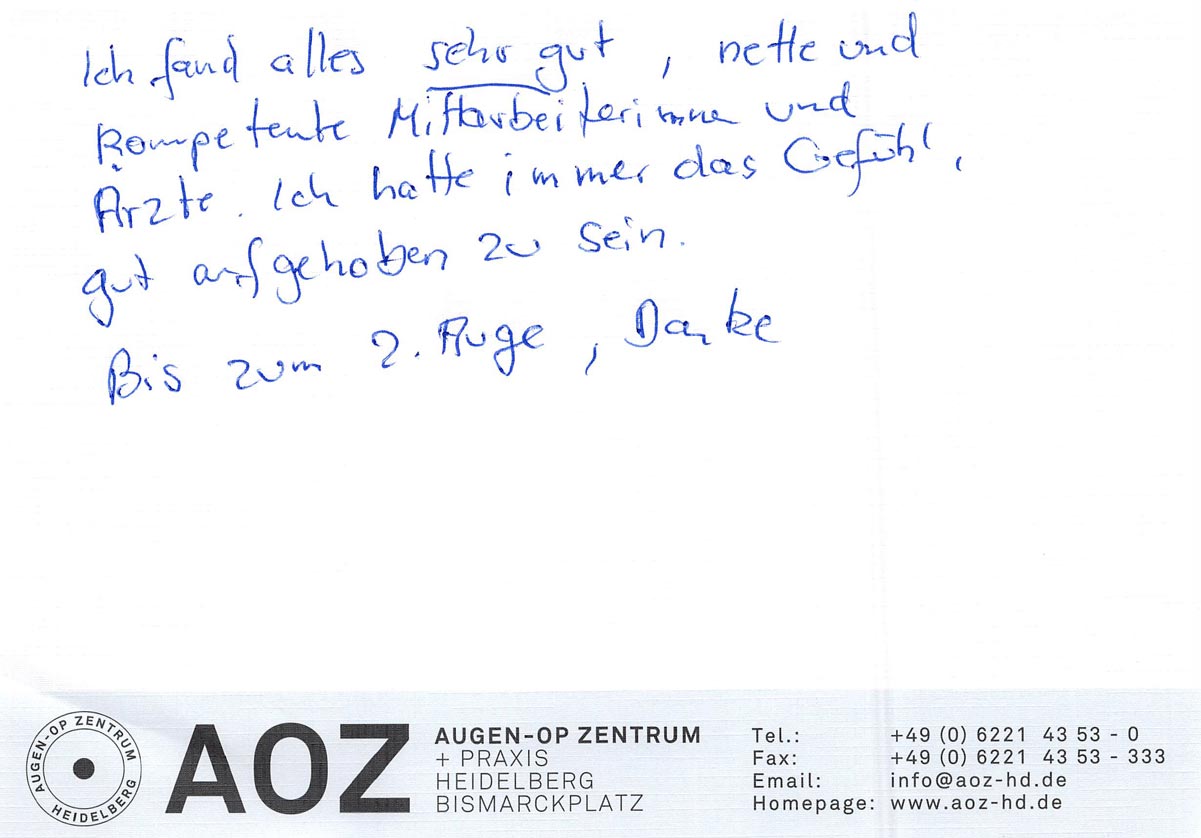 Ich fand alles sehr gut, nette und
kompetente Mitarbeiterinnen und
Ärzte. Ich hatte immer das Gefühl,
gut aufgehoben zu sein.
Bis zum 2. Auge, Danke
AUGEN-OP ZENTRUM
HEIDELBERG
AOZ
AUGEN-OP ZENTRUM
+ PRAXIS
HEIDELBERG
BISMARCKPLATZ
Tel.: +49 (0) 6221 43 53 - 0
Fax: +49 (0) 6221 43 53 - 333
Email: info@aoz-hd.de
Homepage: www.aoz-hd.de